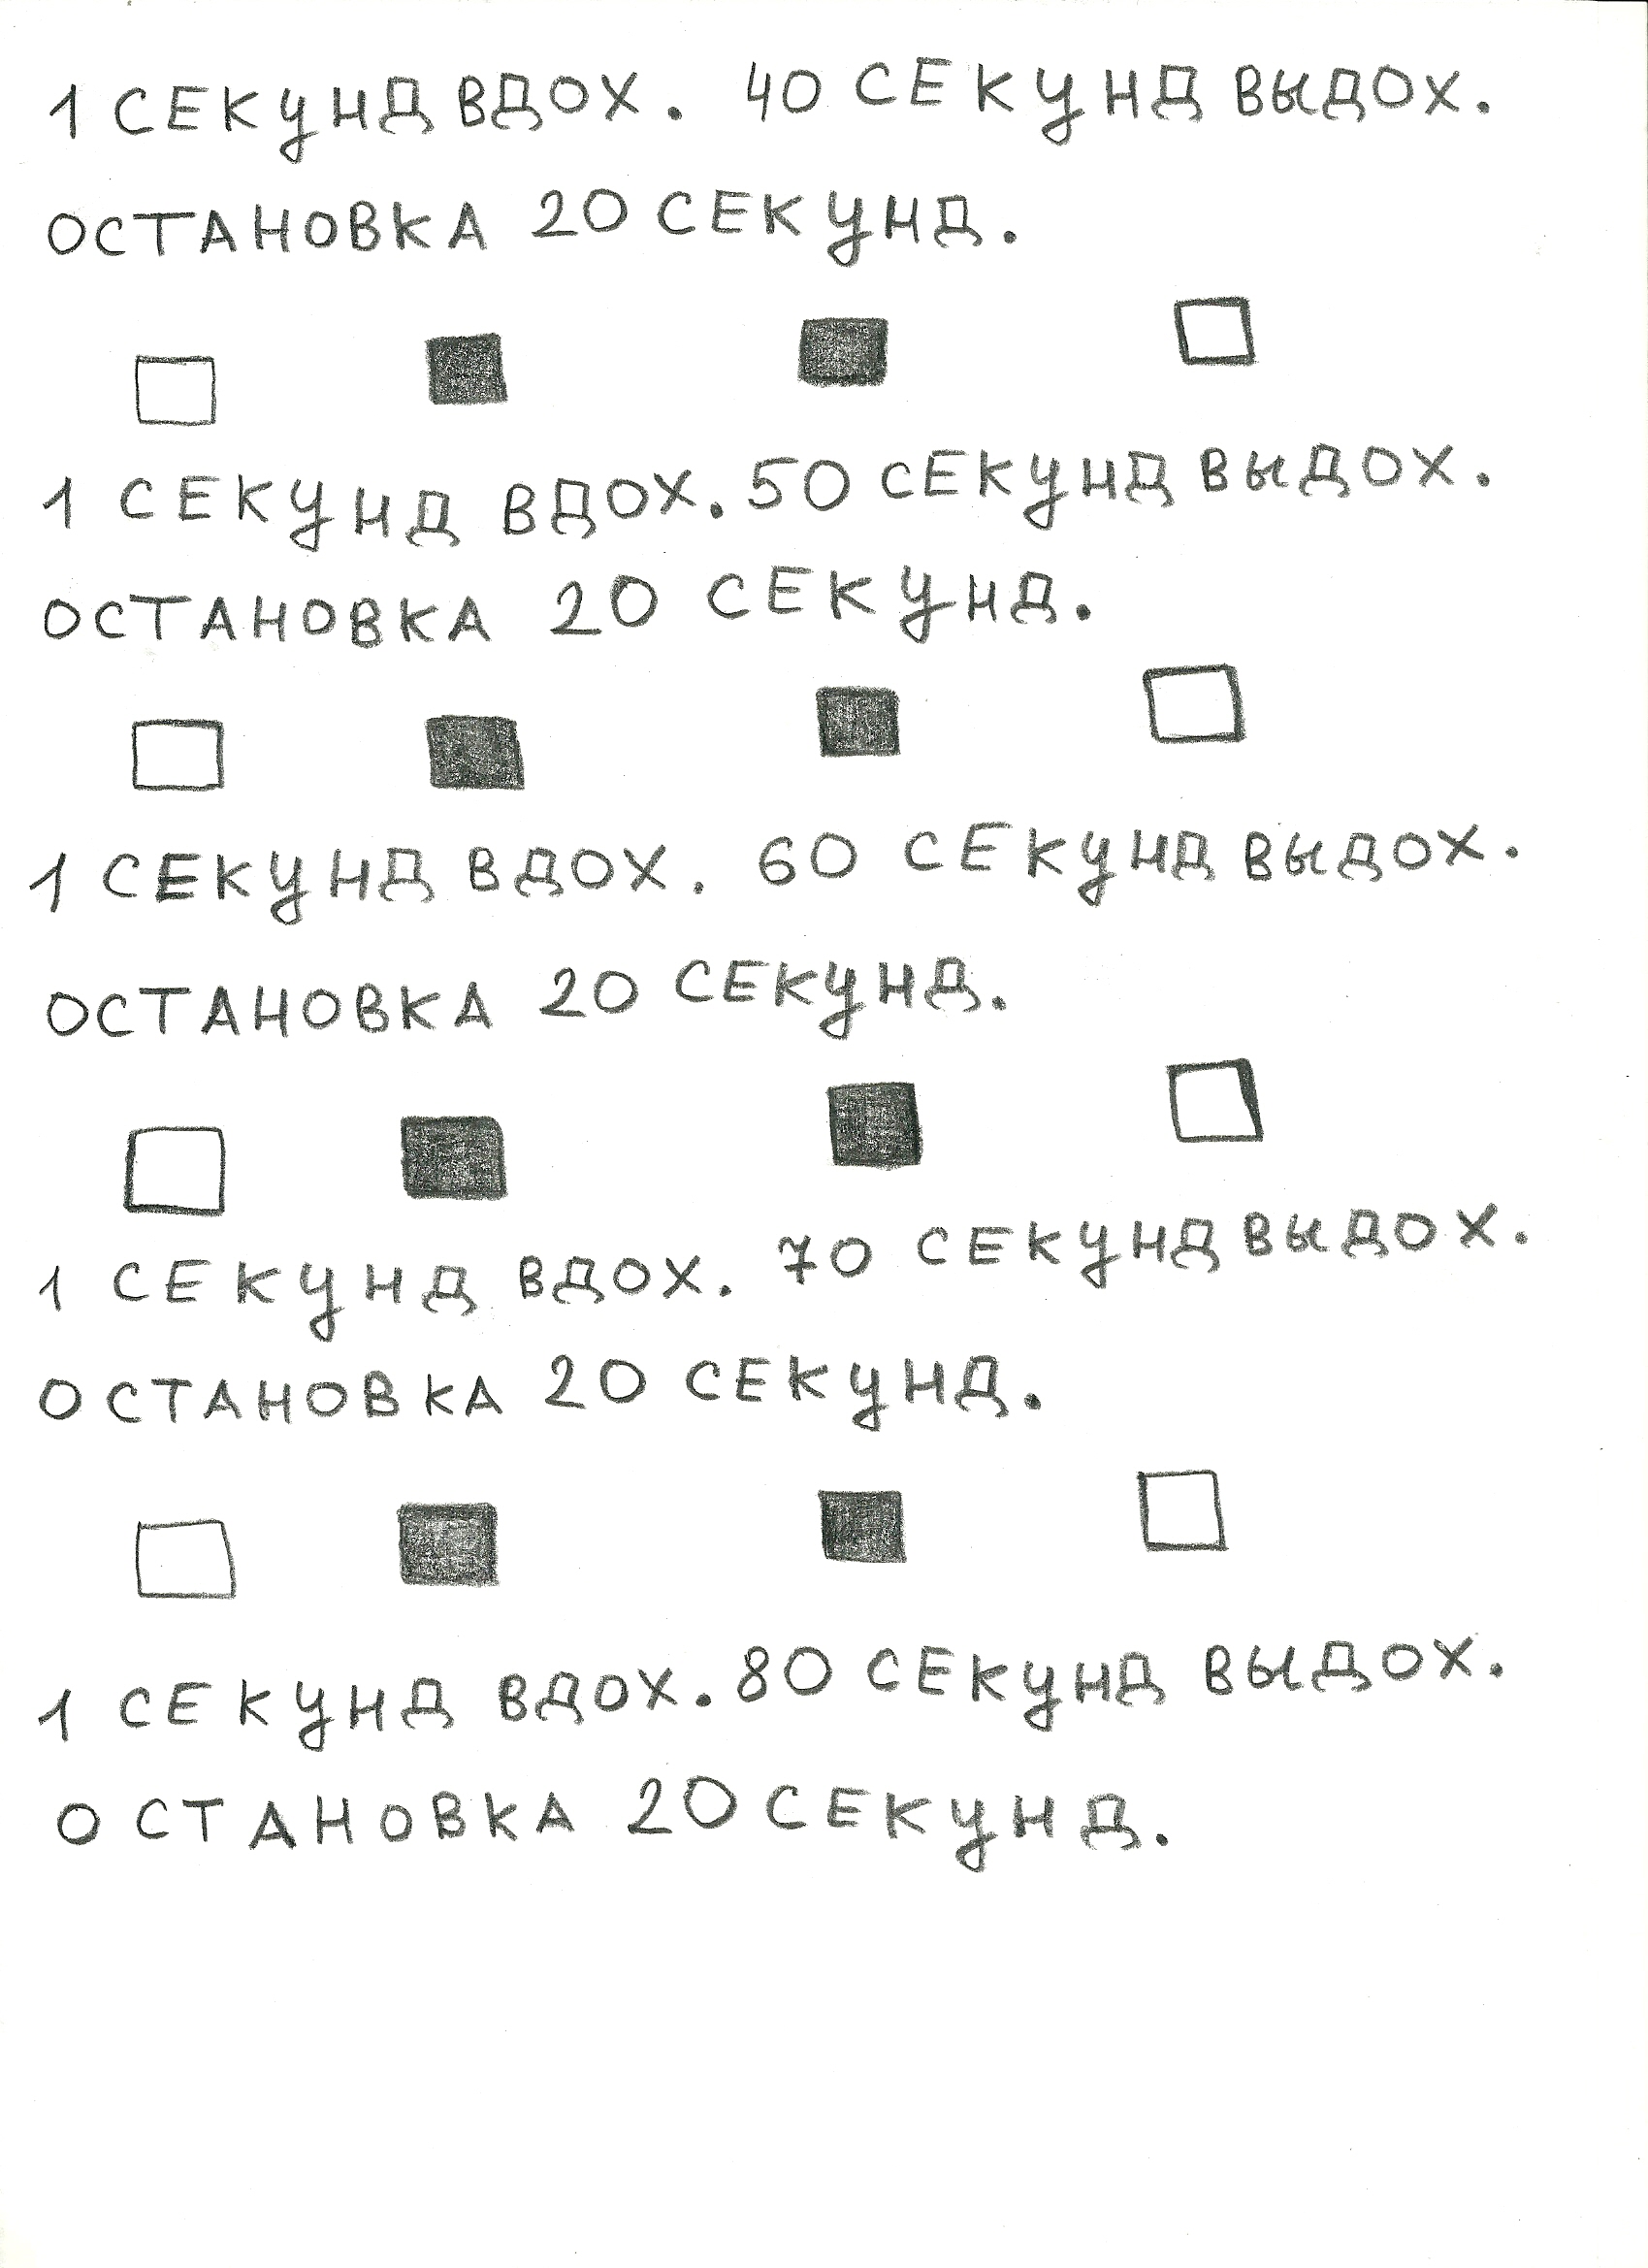 1 СЕКУНД ВДОХ. 40 СЕКУНД ВЫДОХ.
ОСТАНОВКА 20 СЕКУНД.
1 СЕКУНД ВДОХ. 50 СЕКУНД ВЫДОХ.
ОСТАНОВКА 20 СЕКУНД.
1 СЕКУНД ВДОХ. 60 СЕКУНД ВЫДОХ.
ОСТАНОВКА 20 СЕКУНД.
1 СЕКУНД ВДОХ. 70 СЕКУНД ВЫДОХ.
ОСТАНОВКА 20 СЕКУНД.
1 СЕКУНД ВДОХ. 80 СЕКУНД ВЫДОХ.
ОСТАНОВКА 20 СЕКУНД.